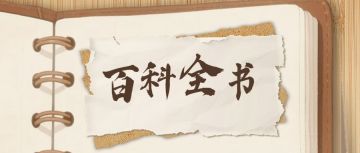 百科全书